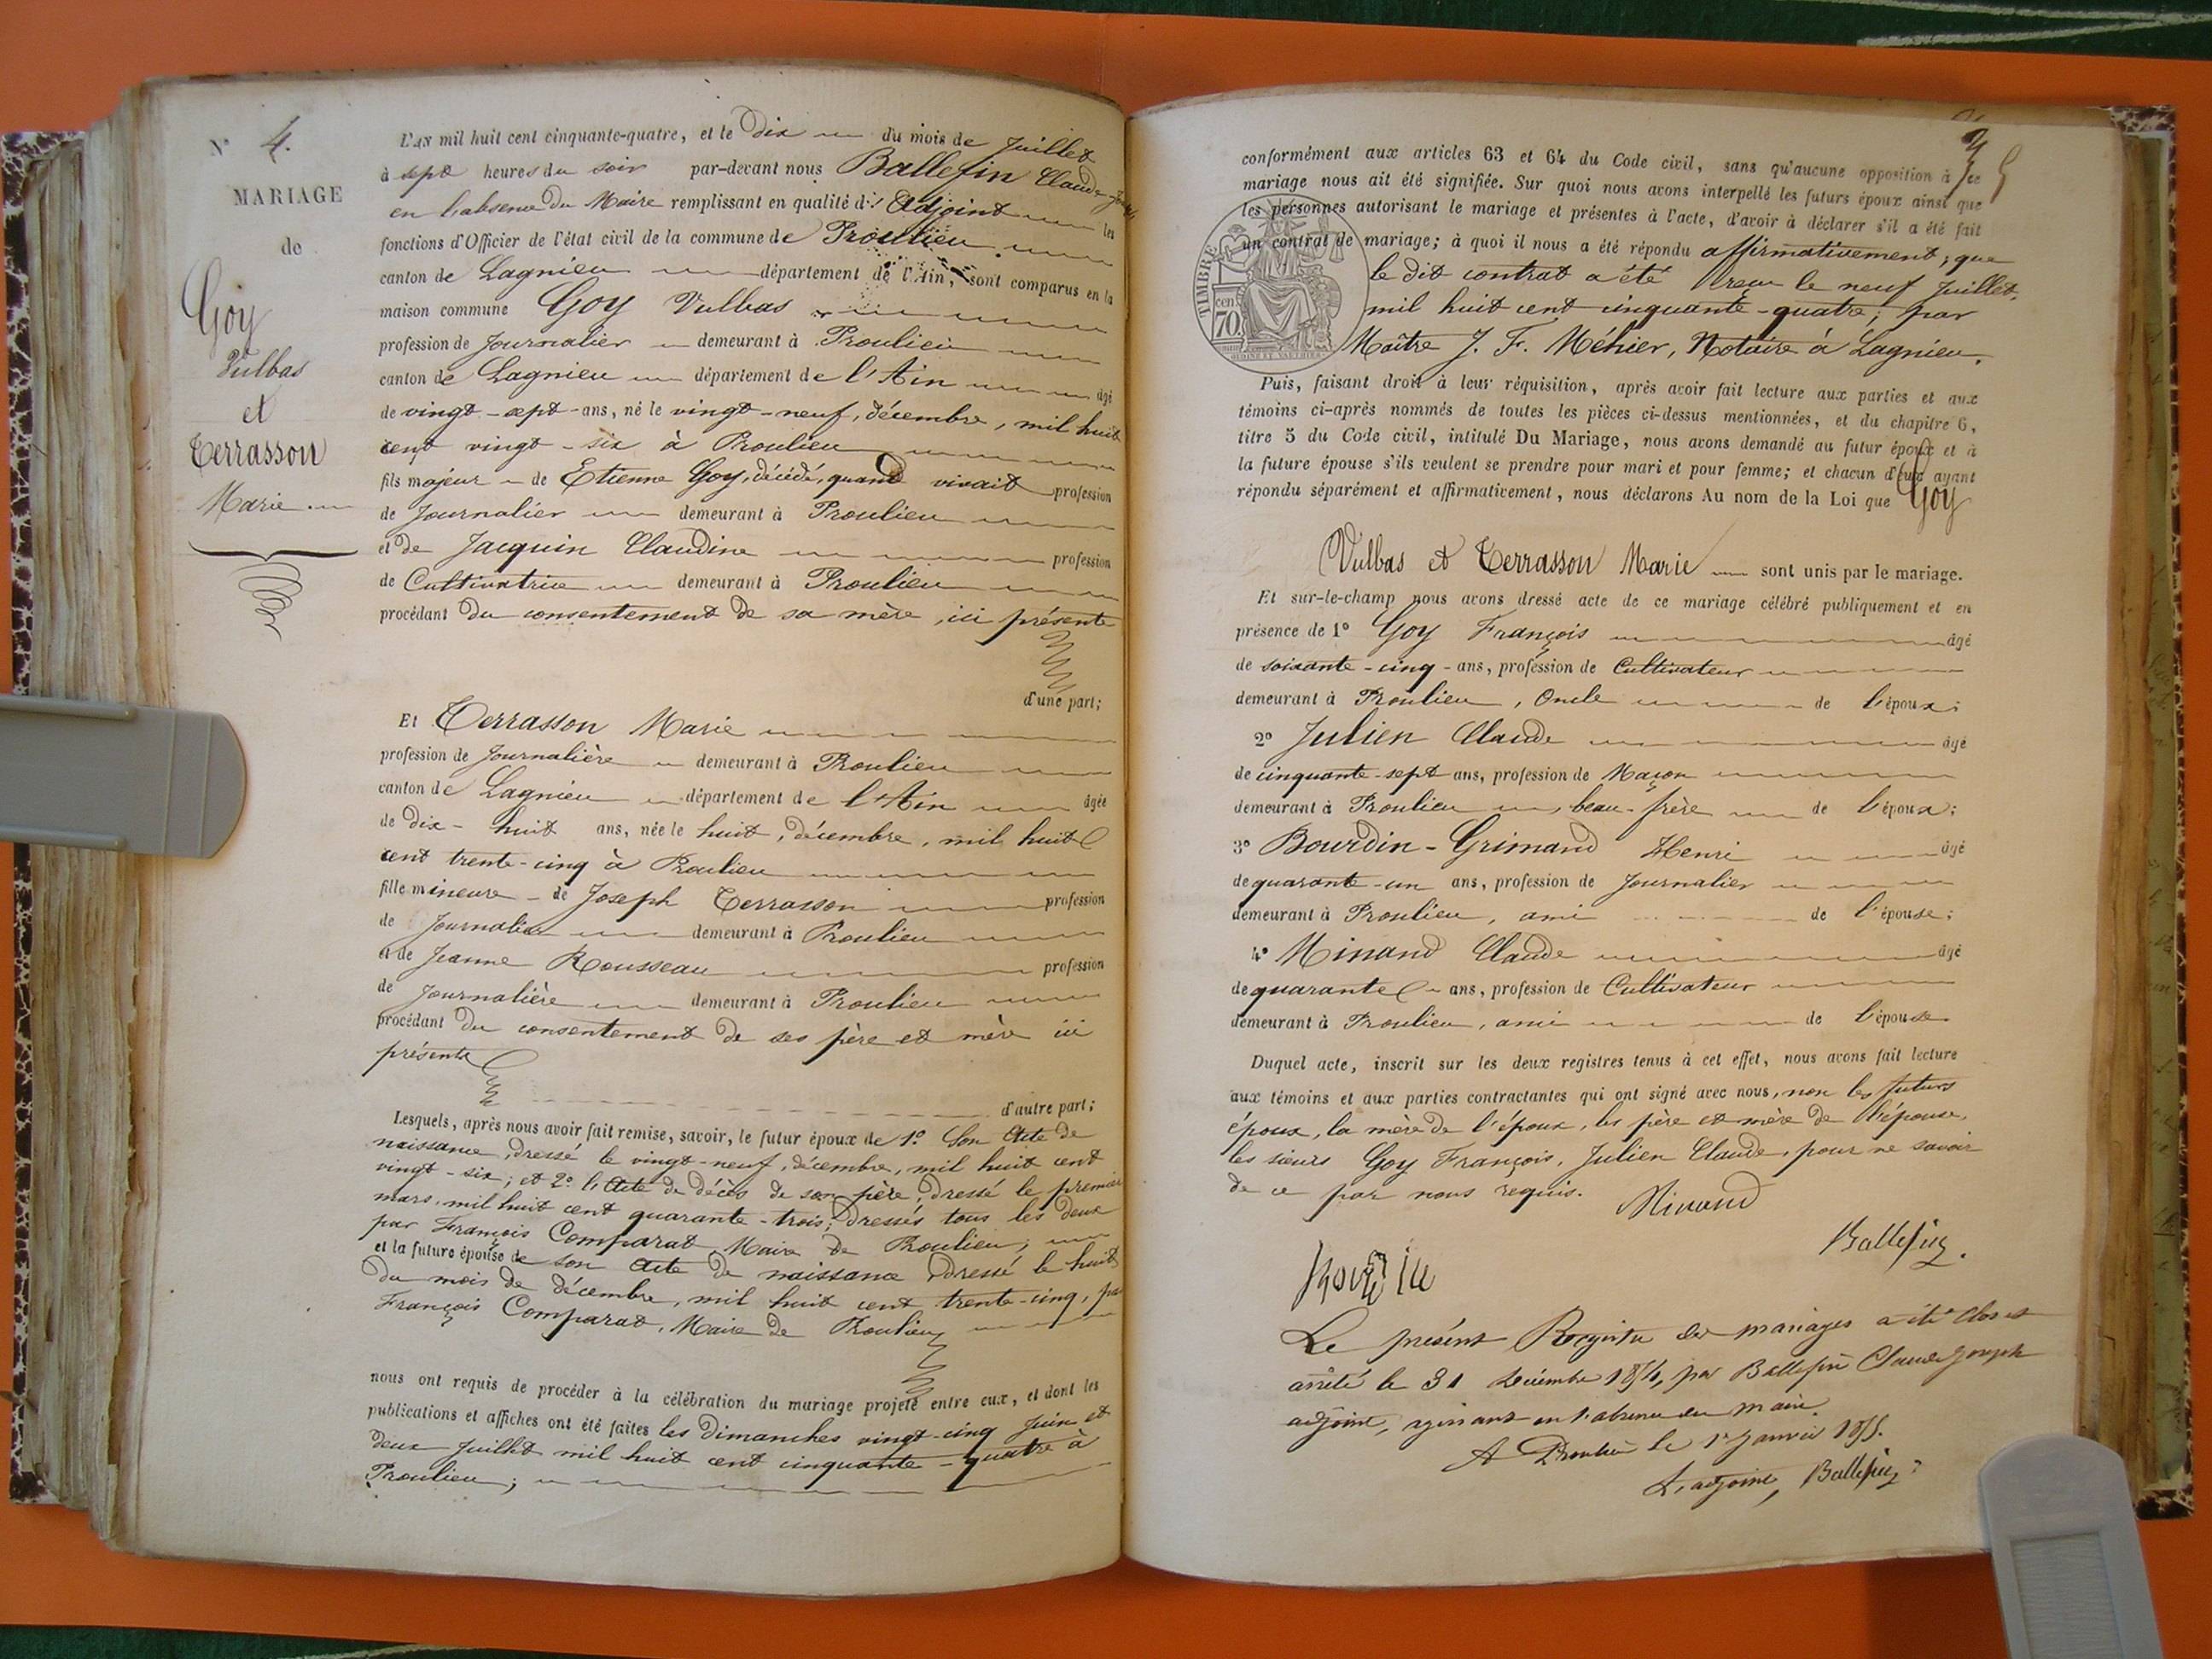 N° 4.
MARIAGE
de
Goy
Vulbas
et
Terrasson
Marie
L'AN mil huit cent cinquante-quatre, et le dix du mois de Juillet
à sept heures du soir par-devant nous Ballefin Claude-Joseph
en l'absence du Maire remplissant en qualité d'Adjoint les
fonctions d'Officier de l'état civil de la commune de Proulieu
canton de Lagnieu département de l'Ain, sont comparus en la
maison commune Goy Vulbas
profession de Journalier demeurant à Proulieu
canton de Lagnieu département de l'Ain âgé
de vingt-sept-ans, né le vingt-neuf, décembre, mil huit
cent vingt-six à Proulieu
fils majeur de Etienne Goy, décédé, quand vivait profession
de Journalier demeurant à Proulieu
et de Jacquin Claudine profession
de Cultivatrice demeurant à Proulieu
procédant du consentement de sa mère, ici présente
d'une part;
Et Terrasson Marie
profession de Journalière demeurant à Proulieu
canton de Lagnieu département de l'Ain âgée
de dix-huit ans, née le huit, décembre, mil huit
cent trente-cinq à Proulieu
fille mineure de Joseph Terrasson profession
de Journalier demeurant à Proulieu
et de Jeanne Rousseau profession
de Journalière demeurant à Proulieu
procédant du consentement de ses père et mère ici
présents
d'autre part;
Lesquels, après nous avoir fait remise, savoir, le futur époux de 1° Son Acte de
naissance, dressé le vingt-neuf, décembre, mil huit cent
vingt-six; et 2° l'Acte de décès de son père, dressé le premier
mars, mil huit cent quarante-trois; dressés tous les deux
par François Comparat Maire de Proulieu;
et la future épouse de son Acte de naissance dressé le huit
du mois de décembre, mil huit cent trente-cinq, par
François Comparat, Maire de Proulieu
nous ont requis de procéder à la célébration du mariage projeté entre eux, et dont les
publications et affiches ont été faites les dimanches vingt-cinq Juin et
deux Juillet mil huit cent cinquante-quatre à
Proulieu;
conformément aux articles 63 et 64 du Code civil, sans qu'aucune opposition à ce
mariage nous ait été signifiée. Sur quoi nous avons interpellé les futurs époux ainsi que
les personnes autorisant le mariage et présentes à l'acte, d'avoir à déclarer s'il a été fait
un contrat de mariage; à quoi il nous a été répondu affirmativement; que
le dit contrat a été reçu le neuf Juillet,
mil huit cent cinquante-quatre; par
Maître J. F. Méhier, Notaire à Lagnieu.
TIMBRE
70 cen
Puis, faisant droit à leur réquisition, après avoir fait lecture aux parties et aux
témoins ci-après nommés de toutes les pièces ci-dessus mentionnées, et du chapitre 6,
titre 5 du Code civil, intitulé Du Mariage, nous avons demandé au futur époux et à
la future épouse s'ils veulent se prendre pour mari et pour femme; et chacun d'eux ayant
répondu séparément et affirmativement, nous déclarons Au nom de la Loi que Goy
Vulbas et Terrasson Marie sont unis par le mariage.
Et sur-le-champ nous avons dressé acte de ce mariage célébré publiquement et en
présence de 1° Goy François âgé
de soixante-cinq-ans, profession de Cultivateur
demeurant à Proulieu, Oncle de l'époux;
2° Julien Claude âgé
de cinquante-sept ans, profession de Maçon
demeurant à Proulieu, beau-frère de l'époux;
3° Bourdin-Grimand Henri âgé
de quarante-un ans, profession de Journalier
demeurant à Proulieu, ami de l'épouse;
4° Minand Claude âgé
de quarante ans, profession de Cultivateur
demeurant à Proulieu, ami de l'épouse
Duquel acte, inscrit sur les deux registres tenus à cet effet, nous avons fait lecture
aux témoins et aux parties contractantes qui ont signé avec nous, non les futurs
époux, la mère de l'époux, les père et mère de l'épouse,
les sieurs Goy François, Julien Claude, pour ne savoir
de ce par nous requis.
Minand
Ballefin.
Le présent Registre des mariages a été Clos et
arrêté le 31 Décembre 1854, par Ballefin Claude Joseph
adjoint, agissant en l'absence du maire
A Proulieu le 1er Janvier 1855.
L'adjoint, Ballefin